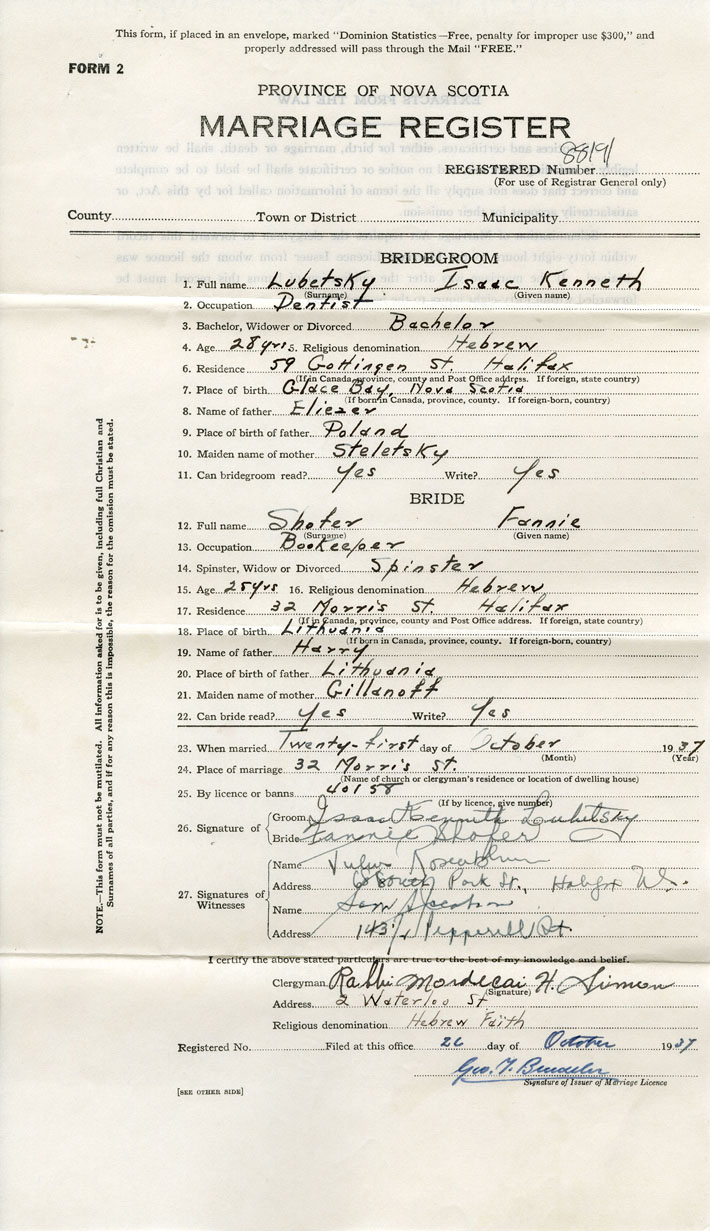 This form, if placed in an envelope, marked "Dominion Statistics—Free, penalty for improper use $300," and
properly addressed will pass through the Mail "FREE."
FORM 2
PROVINCE OF NOVA SCOTIA
MARRIAGE REGISTER
REGISTERED Number
(For use of Registrar General only)
County Town or District Municipality
BRIDEGROOM
1. Full name Lubetsky Isaac Kenneth
(Surname) (Given name)
2. Occupation Dentist
3. Bachelor, Widower or Divorced Bachelor
4. Age 28 yrs 5. Religious denomination Hebrew
6. Residence 59 Gottingen St. Halifax
(If in Canada, province, county and Post Office address. If foreign, state country)
7. Place of birth Glace Bay, Nova Scotia
(If born in Canada, province, county. If foreign-born, country)
8. Name of father Eliezer
9. Place of birth of father Poland
10. Maiden name of mother Steletsky
11. Can bridegroom read? Yes Write? Yes
BRIDE
12. Full name Shofer Fannie
(Surname) (Given name)
13. Occupation Bookeeper
14. Spinster, Widow or Divorced Spinster
15. Age 25 yrs 16. Religious denomination Hebrew
17. Residence 32 Morris St. Halifax
(If in Canada, province, county and Post Office address. If foreign, state country)
18. Place of birth Lithuania
(If born in Canada, province, county. If foreign-born, country)
19. Name of father Harry
20. Place of birth of father Lithuania
21. Maiden name of mother Gillanoff
22. Can bride read? Yes Write? Yes
23. When married Twenty-first day of October 1937
(Month) (Year)
24. Place of marriage 32 Morris St.
(Name of church or clergyman's residence or location of dwelling house)
25. By licence or banns 40158
(If by licence, give number)
26. Signature of Groom Isaac Kenneth Lubetsky
Bride Fannie Shofer
27. Signatures of Witnesses
Name Rosenblum
Address South Park St., Halifax
Name Sam Jacobson
Address Pepperell St.
I certify the above stated particulars are true to the best of my knowledge and belief.
Clergyman Rabbi Mordecai H. Simon
(Signature)
Address 2 Waterloo St
Religious denomination Hebrew Faith
Registered No. Filed at this office 26 day of October 1937
Geo. T.
Signature of Issuer of Marriage Licence
[SEE OTHER SIDE]
NOTE.—This form must not be mutilated. All information asked for is to be given, including full Christian and
Surnames of all parties, and if for any reason this is impossible, the reason for the omission must be stated.